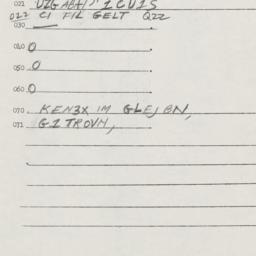 021 UZGABHJ" 1CU1S
022 CI FIL GELT Q22
030 —
040 0
050 0
060 0
070 KEN3X IM GLEJBN,
071 G1TROVN,